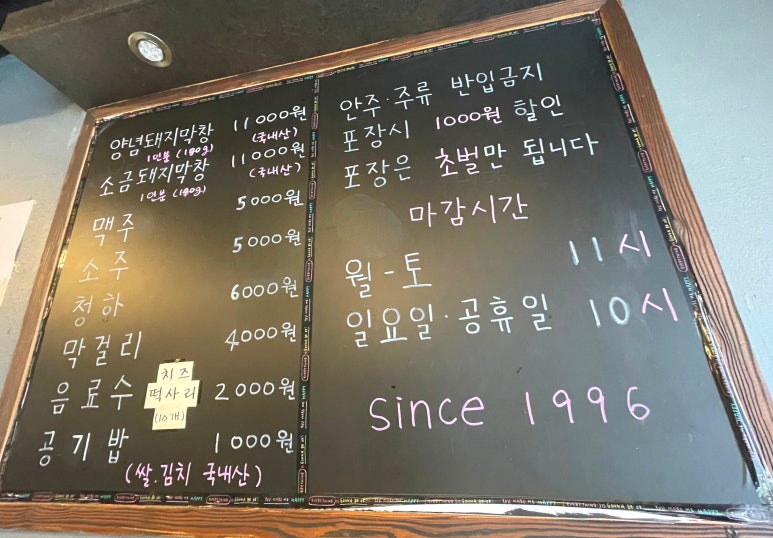 양념돼지막창 11000원
1인분 (180g) (국내산)
소금돼지막창 11000원
1인분 (180g) (국내산)
맥주 5000원
소주 5000원
청하 6000원
막걸리 4000원
음료수 2000원
치즈
떡사리
(10개)
공기밥 1000원
(쌀.김치 국내산)
안주·주류 반입금지
포장시 1000원 할인
포장은 초벌만 됩니다
마감시간
월-토 11시
일요일·공휴일 10시
since 1996